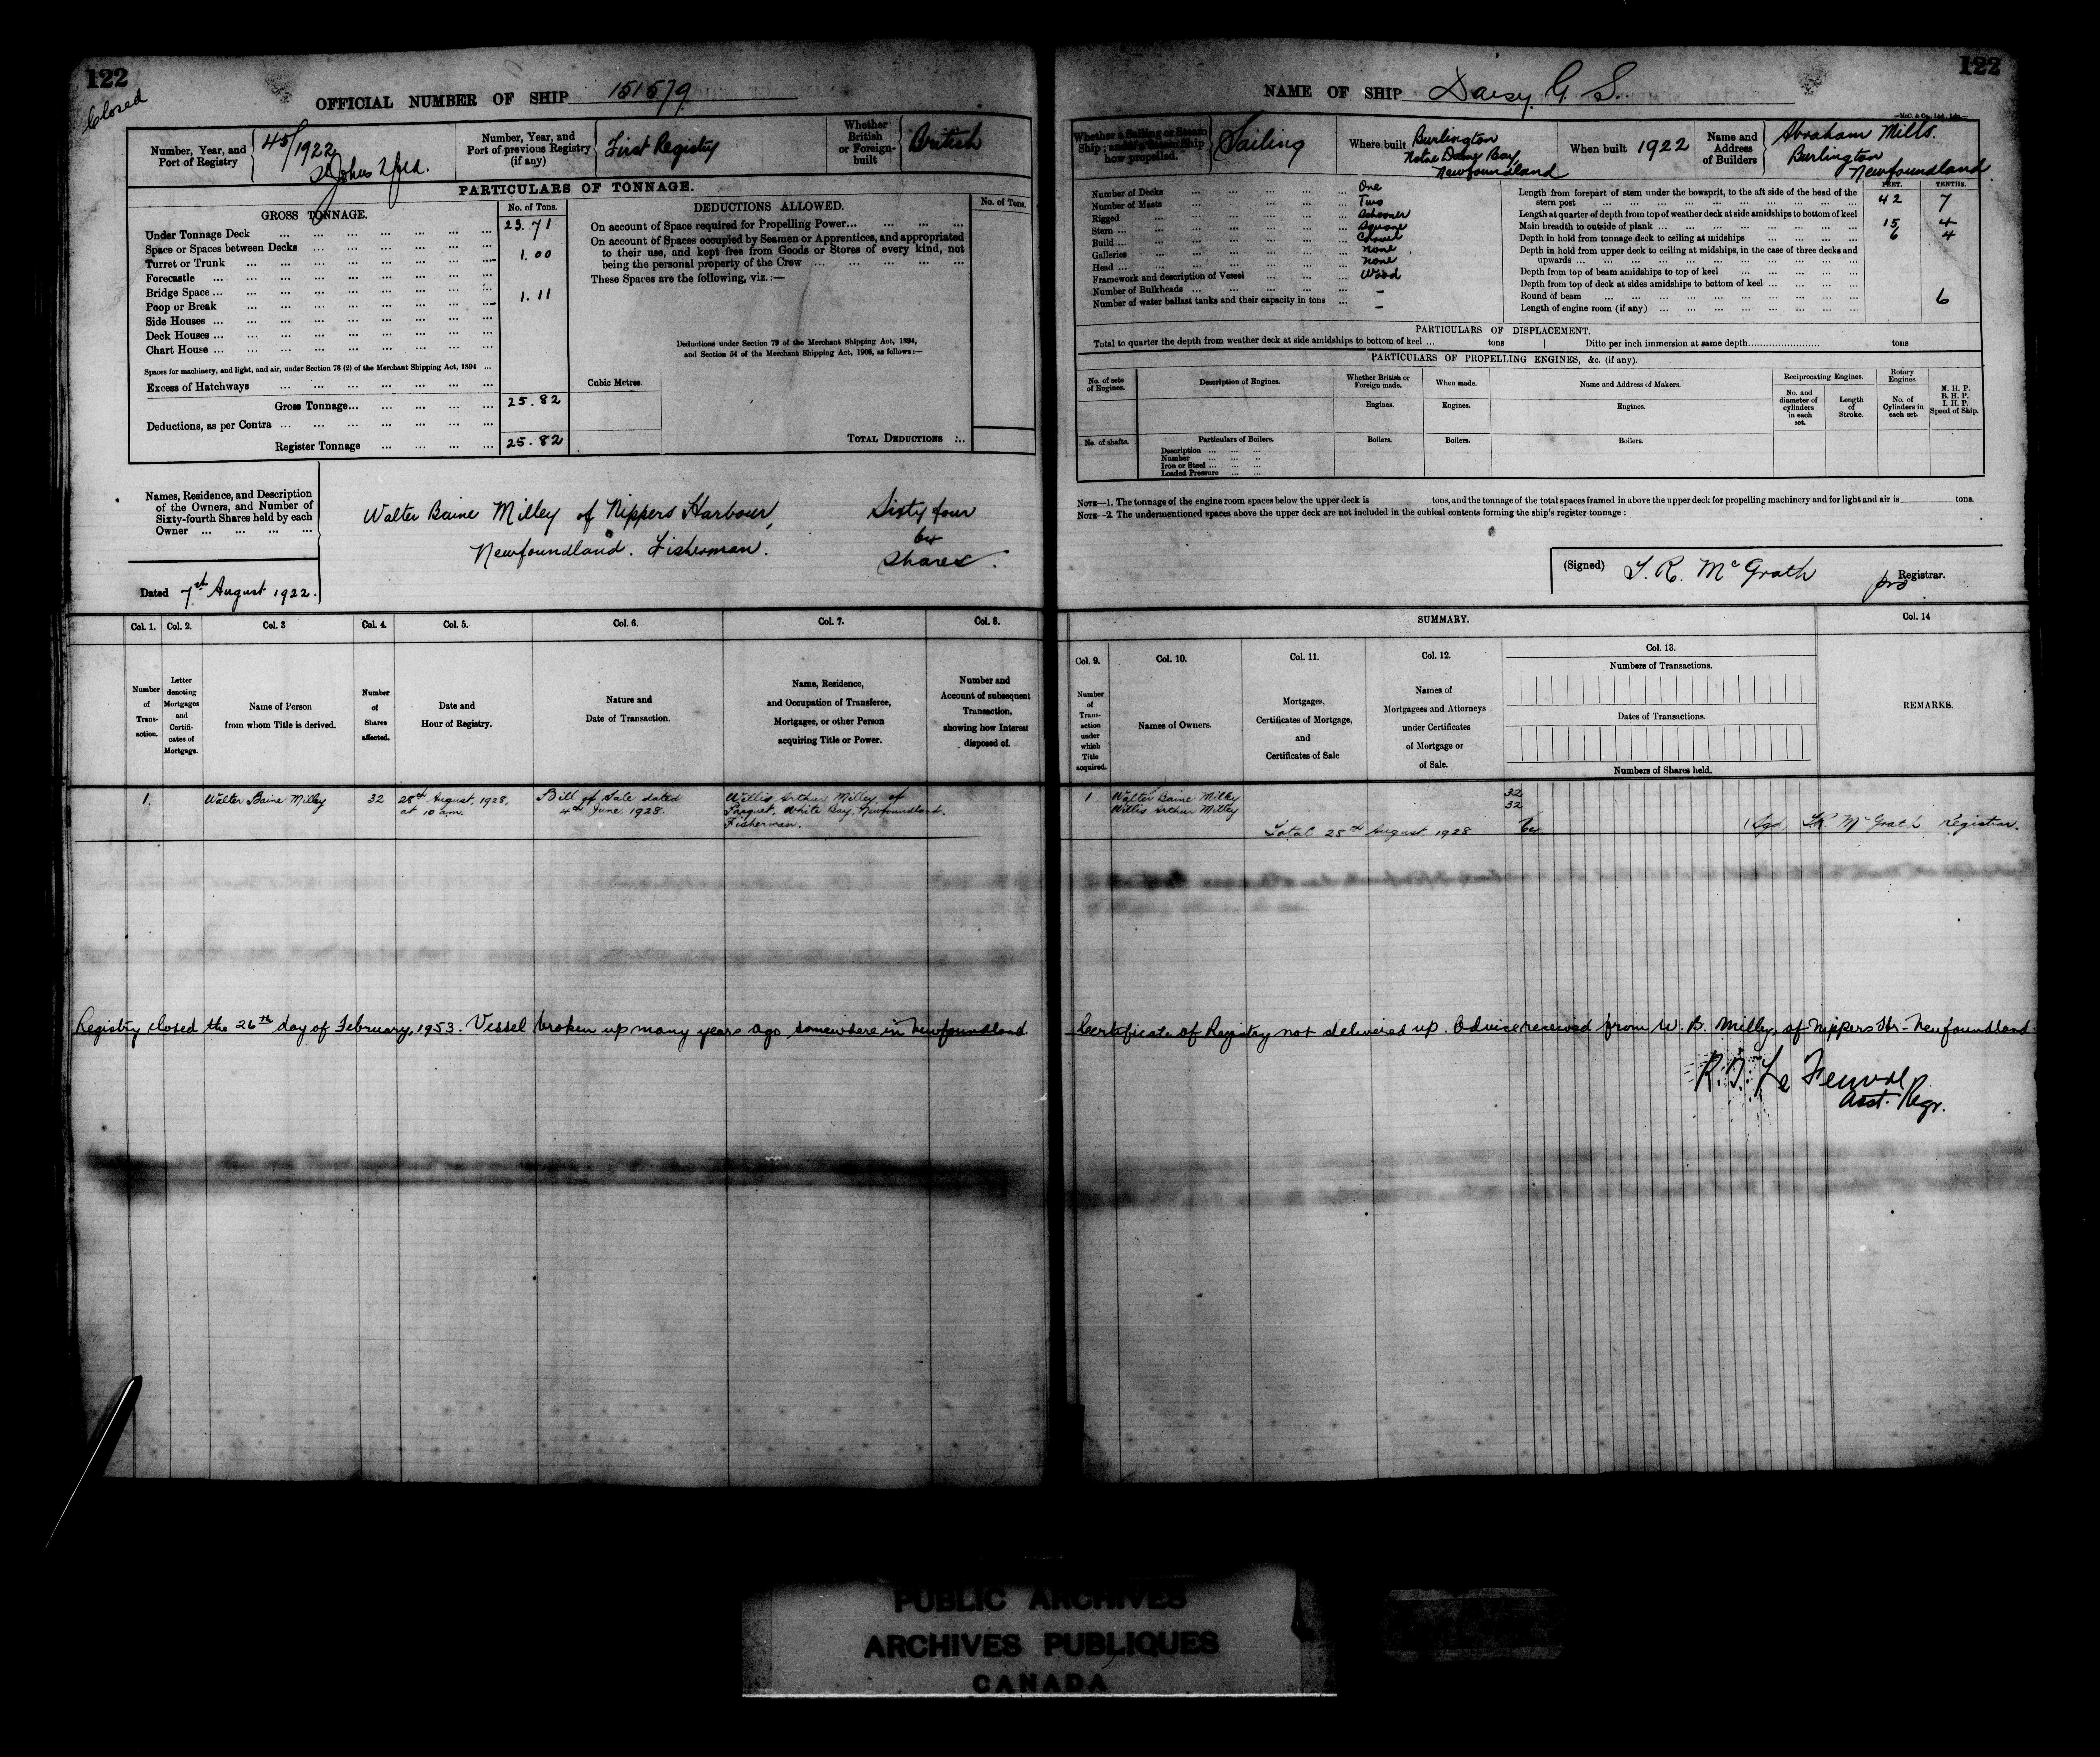 122
Closed
OFFICIAL NUMBER OF SHIP 151579
Number, Year, and Port of Registry
45/1922
St Johns Nfld.
Number, Year, and Port of previous Registry (if any)
First Registry
Whether British or Foreign-built
British
PARTICULARS OF TONNAGE.
GROSS TONNAGE.
No. of Tons.
Under Tonnage Deck ... 23.71
Space or Spaces between Decks ...
Turret or Trunk ... 1.00
Forecastle ...
Bridge Space ...
Poop or Break ... 1.11
Side Houses ...
Deck Houses ...
Chart House ...
Spaces for machinery, and light, and air, under Section 78 (2) of the Merchant Shipping Act, 1894 ...
Excess of Hatchways ...
Gross Tonnage... 25.82
Deductions, as per Contra ...
Register Tonnage ... 25.82
DEDUCTIONS ALLOWED.
No. of Tons.
On account of Space required for Propelling Power...
On account of Spaces occupied by Seamen or Apprentices, and appropriated
to their use, and kept free from Goods or Stores of every kind, not
being the personal property of the Crew ...
These Spaces are the following, viz.:—
Deductions under Section 79 of the Merchant Shipping Act, 1894,
and Section 54 of the Merchant Shipping Act, 1906, as follows:—
Cubic Metres.
TOTAL DEDUCTIONS
Names, Residence, and Description
of the Owners, and Number of
Sixty-fourth Shares held by each
Owner ...
Walter Baine Milley of Nippers Harbour,
Newfoundland. Fisherman.
Sixty four
64
Shares.
Dated 7th August 1922.
Col. 1.
Number of Transaction.
Col. 2.
Letter denoting Mortgages and Certificates of Mortgage.
Col. 3
Name of Person
from whom Title is derived.
Col. 4.
Number of Shares affected.
Col. 5.
Date and
Hour of Registry.
Col. 6.
Nature and
Date of Transaction.
Col. 7.
Name, Residence,
and Occupation of Transferee,
Mortgagee, or other Person
acquiring Title or Power.
Col. 8.
Number and
Account of subsequent
Transaction,
showing how Interest
disposed of.
1. Walter Baine Milley 32
28th August, 1928,
at 10 am.
Bill of Sale dated
4th June 1928.
Willis Arthur Milley, of
Pacquet, White Bay, Newfoundland.
Fisherman.
Registry closed the 26th day of February, 1953. Vessel broken up many years ago somewhere in Newfoundland
122
NAME OF SHIP Daisy G. S.
McC. & Co., Ltd., Ldn.
Whether a Sailing or Steam Ship; and if a Steam Ship how propelled.
Sailing
Where built
Burlington
Notre Dame Bay,
Newfoundland
When built 1922
Name and Address of Builders
Abraham Mills.
Burlington
Newfoundland.
Number of Decks ... One
Number of Masts ... Two
Rigged ... Schooner
Stern ... Square
Build ... Carvel
Galleries ... none
Head ... none
Framework and description of Vessel ... Wood
Number of Bulkheads ... –
Number of water ballast tanks and their capacity in tons ... –
FEET. TENTHS.
Length from forepart of stem under the bowsprit, to the aft side of the head of the
stern post ... 42 7
Length at quarter of depth from top of weather deck at side amidships to bottom of keel
Main breadth to outside of plank ... 15 4
Depth in hold from tonnage deck to ceiling at midships ... 6 4
Depth in hold from upper deck to ceiling at midships, in the case of three decks and
upwards ...
Depth from top of beam amidships to top of keel ...
Depth from top of deck at sides amidships to bottom of keel ...
Round of beam ... 6
Length of engine room (if any) ...
PARTICULARS OF DISPLACEMENT.
Total to quarter the depth from weather deck at side amidships to bottom of keel ... tons
Ditto per inch immersion at same depth........ tons
PARTICULARS OF PROPELLING ENGINES, &c. (if any).
No. of sets of Engines.
Description of Engines.
Whether British or Foreign made.
When made.
Name and Address of Makers.
Reciprocating Engines.
Rotary Engines.
N. H. P.
B. H. P.
I. H. P.
Speed of Ship.
Engines. Engines. Engines.
No. and diameter of cylinders in each set.
Length of Stroke.
No. of Cylinders in each set.
No. of shafts.
Particulars of Boilers.
Boilers. Boilers. Boilers.
Description ...
Number ...
Iron or Steel ...
Loaded Pressure ...
NOTE—1. The tonnage of the engine room spaces below the upper deck is ____ tons, and the tonnage of the total spaces framed in above the upper deck for propelling machinery and for light and air is ____ tons.
NOTE—2. The undermentioned spaces above the upper deck are not included in the cubical contents forming the ship's register tonnage:
(Signed) S. R. McGrath pro Registrar.
SUMMARY.
Col. 9.
Number of Transaction under which Title acquired.
Col. 10.
Names of Owners.
Col. 11.
Mortgages,
Certificates of Mortgage,
and
Certificates of Sale
Col. 12.
Names of
Mortgagees and Attorneys
under Certificates
of Mortgage or
of Sale.
Col. 13.
Numbers of Transactions.
Dates of Transactions.
Numbers of Shares held.
Col. 14
REMARKS.
1 Walter Baine Milley 32
Willis Arthur Milley 32
Total 28th August 1928 64
(Sgd. S.R. McGrath Registrar.
Certificate of Registry not delivered up. Advice received from W. B. Milley, of Nippers Hr - Newfoundland.
Asst. Regr.
PUBLIC ARCHIVES
ARCHIVES PUBLIQUES
CANADA